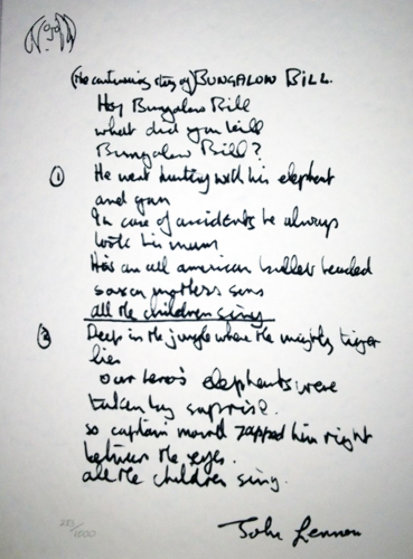 (The continuing story of) BUNGALOW BILL.
Hey Bungalow Bill
what did you kill
Bungalow Bill?
① He went hunting with his elephant
and gun
In case of accidents he always
took his mum
He's an all american bullet headed
saxon mothers son
all the children sing
② Deep in the jungle where the mighty tiger
lies
our hero's elephants were
taken by surprise.
so captain marvel zapped him right
between the eyes.
all the children sing.
283/1000
John Lennon